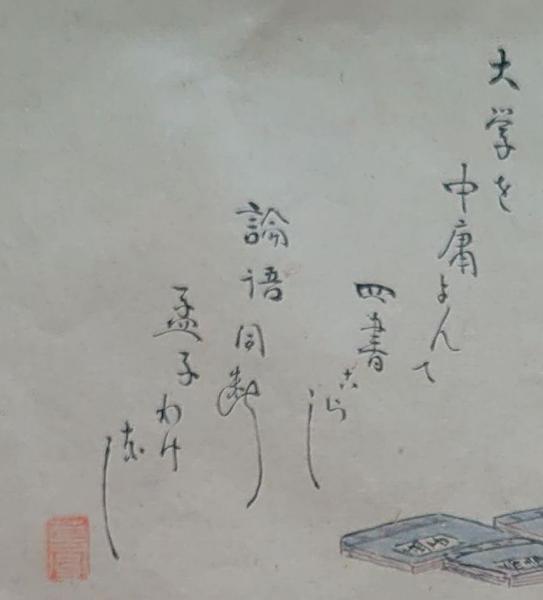 大学を
中庸よんて
四書こらし
論語同断
孟子わけなし